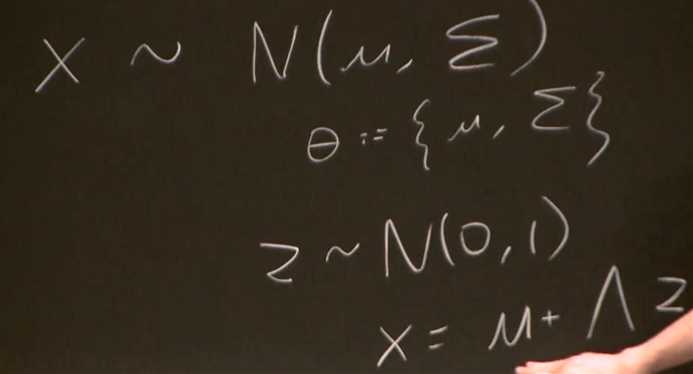 X ~ N(μ, Σ)
θ := {μ, Σ}
z ~ N(0, 1)
x = μ + Λ z